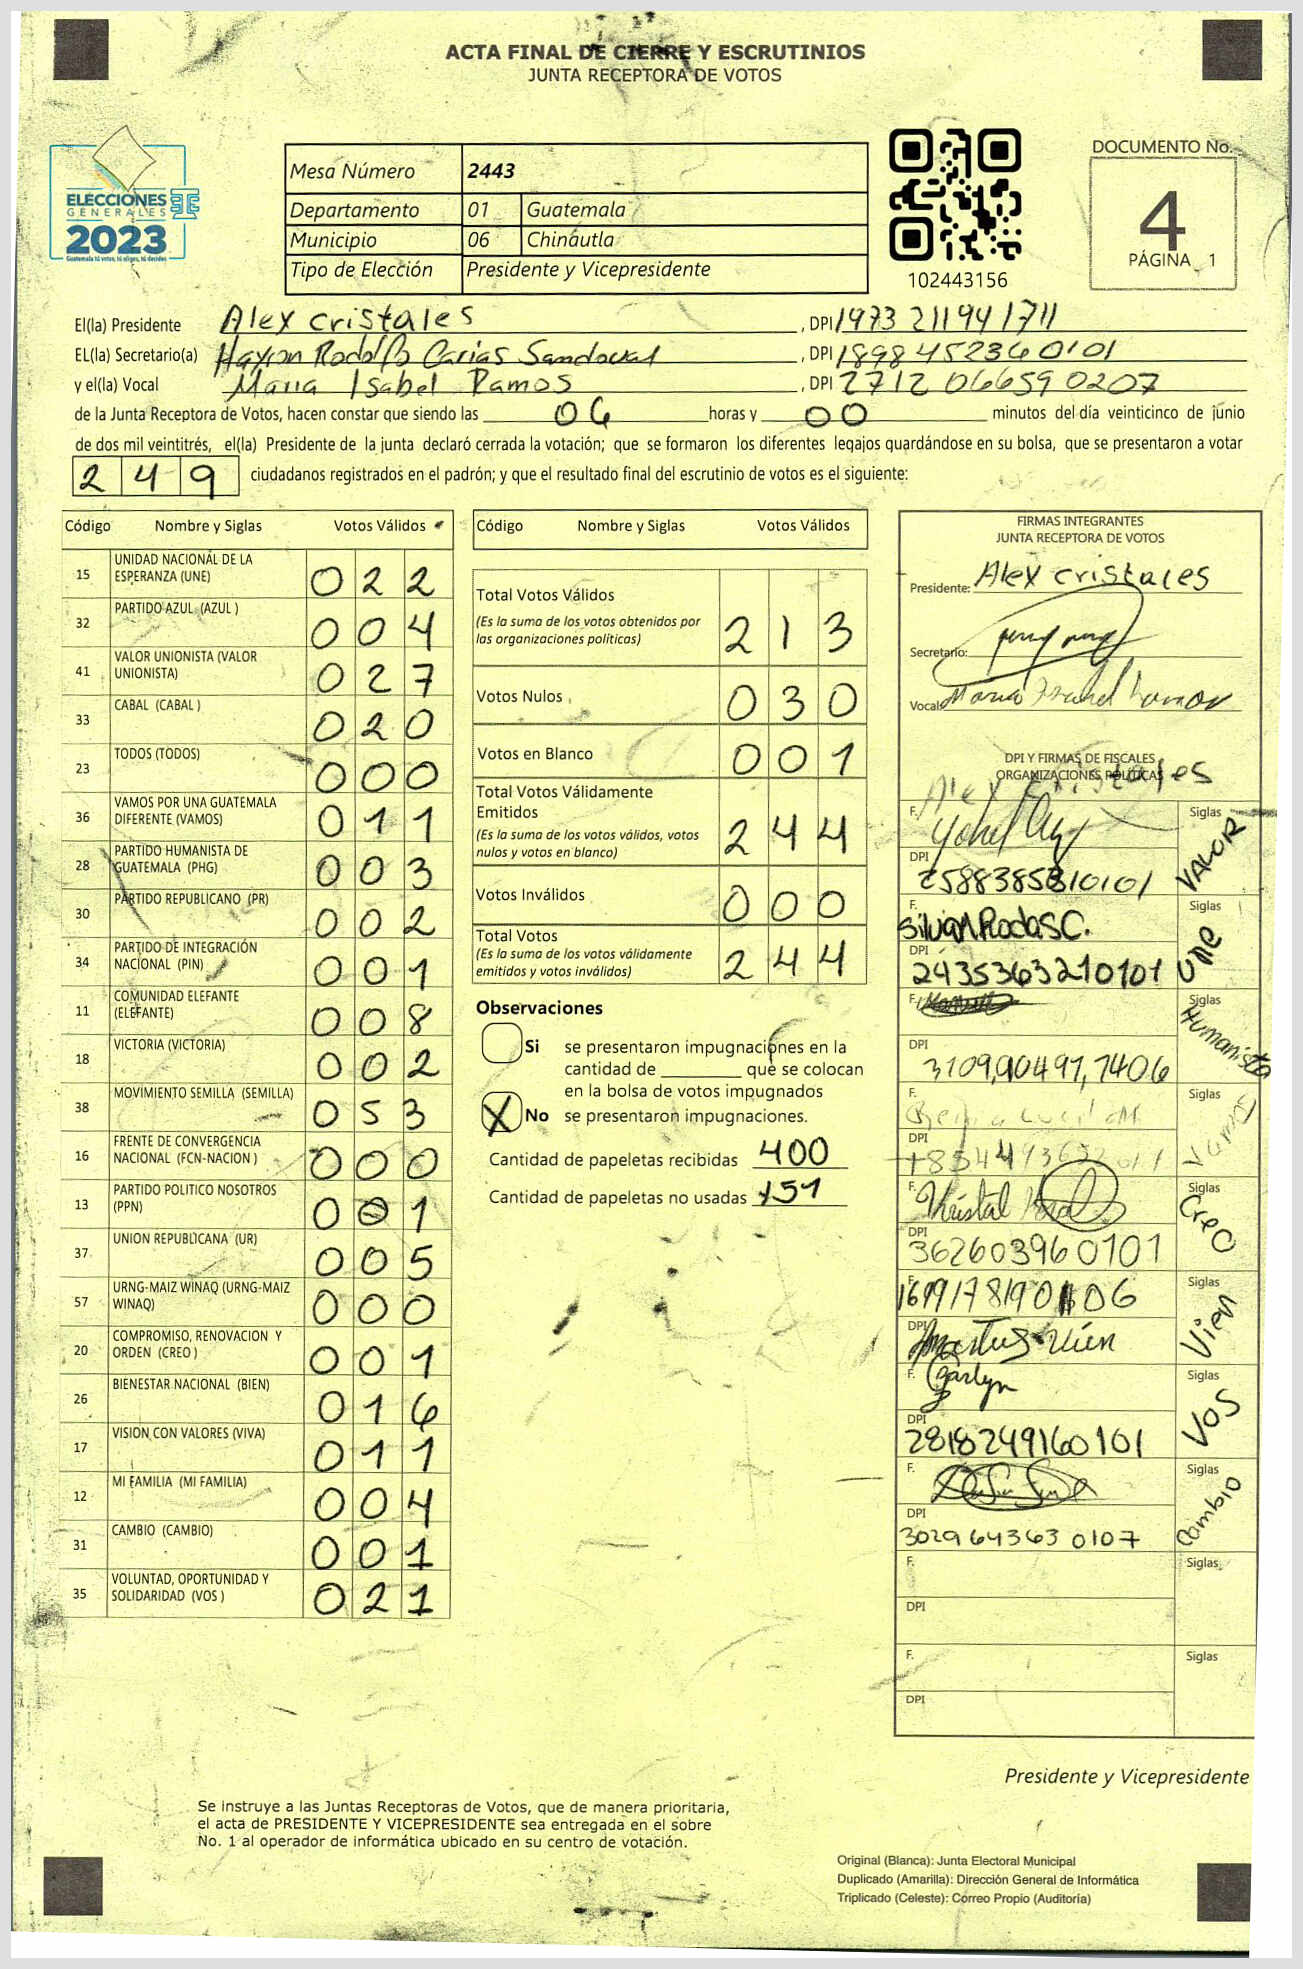 ACTA FINAL DE CIERRE Y ESCRUTINIOS
JUNTA RECEPTORA DE VOTOS
ELECCIONES
GENERALES
2023
Guatemala tú votas, tú eliges, tú decides
Mesa Número 2443
Departamento 01 Guatemala
Municipio 06 Chinautla
Tipo de Elección Presidente y Vicepresidente
102443156
DOCUMENTO No.
4
PÁGINA 1
El(la) Presidente Alex cristales , DPI 1973 21194 1711
EL(la) Secretario(a) Rodolfo Carias Sandoval , DPI 1898 45236 0101
y el(la) Vocal Maria Isabel Ramos , DPI 2712 06659 0207
de la Junta Receptora de Votos, hacen constar que siendo las 06 horas y 00 minutos del día veinticinco de junio
de dos mil veintitrés, el(la) Presidente de la junta declaró cerrada la votación; que se formaron los diferentes legajos quardándose en su bolsa, que se presentaron a votar
249 ciudadanos registrados en el padrón; y que el resultado final del escrutinio de votos es el siguiente:
Código Nombre y Siglas Votos Válidos
15 UNIDAD NACIONAL DE LA ESPERANZA (UNE) 022
32 PARTIDO AZUL (AZUL ) 004
41 VALOR UNIONISTA (VALOR UNIONISTA) 027
33 CABAL (CABAL ) 020
23 TODOS (TODOS) 000
36 VAMOS POR UNA GUATEMALA DIFERENTE (VAMOS) 011
28 PARTIDO HUMANISTA DE GUATEMALA (PHG) 003
30 PARTIDO REPUBLICANO (PR) 002
34 PARTIDO DE INTEGRACIÓN NACIONAL (PIN) 001
11 COMUNIDAD ELEFANTE (ELEFANTE) 008
18 VICTORIA (VICTORIA) 002
38 MOVIMIENTO SEMILLA (SEMILLA) 053
16 FRENTE DE CONVERGENCIA NACIONAL (FCN-NACION ) 000
13 PARTIDO POLITICO NOSOTROS (PPN) 001
37 UNION REPUBLICANA (UR) 005
57 URNG-MAIZ WINAQ (URNG-MAIZ WINAQ) 000
20 COMPROMISO, RENOVACION Y ORDEN (CREO ) 001
26 BIENESTAR NACIONAL (BIEN) 016
17 VISION CON VALORES (VIVA) 011
12 MI FAMILIA (MI FAMILIA) 004
31 CAMBIO (CAMBIO) 001
35 VOLUNTAD, OPORTUNIDAD Y SOLIDARIDAD (VOS ) 021
Código Nombre y Siglas Votos Válidos
Total Votos Válidos
(Es la suma de los votos obtenidos por las organizaciones políticas) 213
Votos Nulos 030
Votos en Blanco 001
Total Votos Válidamente Emitidos
(Es la suma de los votos válidos, votos nulos y votos en blanco) 244
Votos Inválidos 000
Total Votos
(Es la suma de los votos válidamente emitidos y votos inválidos) 244
Observaciones
Si se presentaron impugnaciones en la
cantidad de ________ que se colocan
en la bolsa de votos impugnados
X No se presentaron impugnaciones.
Cantidad de papeletas recibidas 400
Cantidad de papeletas no usadas 151
FIRMAS INTEGRANTES
JUNTA RECEPTORA DE VOTOS
Presidente: Alex cristales
Secretario:
Vocal: Maria Isabel Ramos
DPI Y FIRMAS DE FISCALES
ORGANIZACIONES POLÍTICAS
F. Siglas VALOR
DPI
F. Silvia Rodas C. Siglas UNE
DPI 2435363210101
F. Siglas Humanista
DPI
F. Siglas
DPI
F. Kristal Siglas Creo
DPI 362603960101
F. Siglas Vien
DPI
F. Siglas VOS
DPI 2818249160101
F. Siglas Cambio
DPI 3029 64363 0107
F. Siglas
DPI
F. Siglas
DPI
Presidente y Vicepresidente
Se instruye a las Juntas Receptoras de Votos, que de manera prioritaria,
el acta de PRESIDENTE Y VICEPRESIDENTE sea entregada en el sobre
No. 1 al operador de informática ubicado en su centro de votación.
Original (Blanca): Junta Electoral Municipal
Duplicado (Amarilla): Dirección General de Informática
Triplicado (Celeste): Correo Propio (Auditoría)